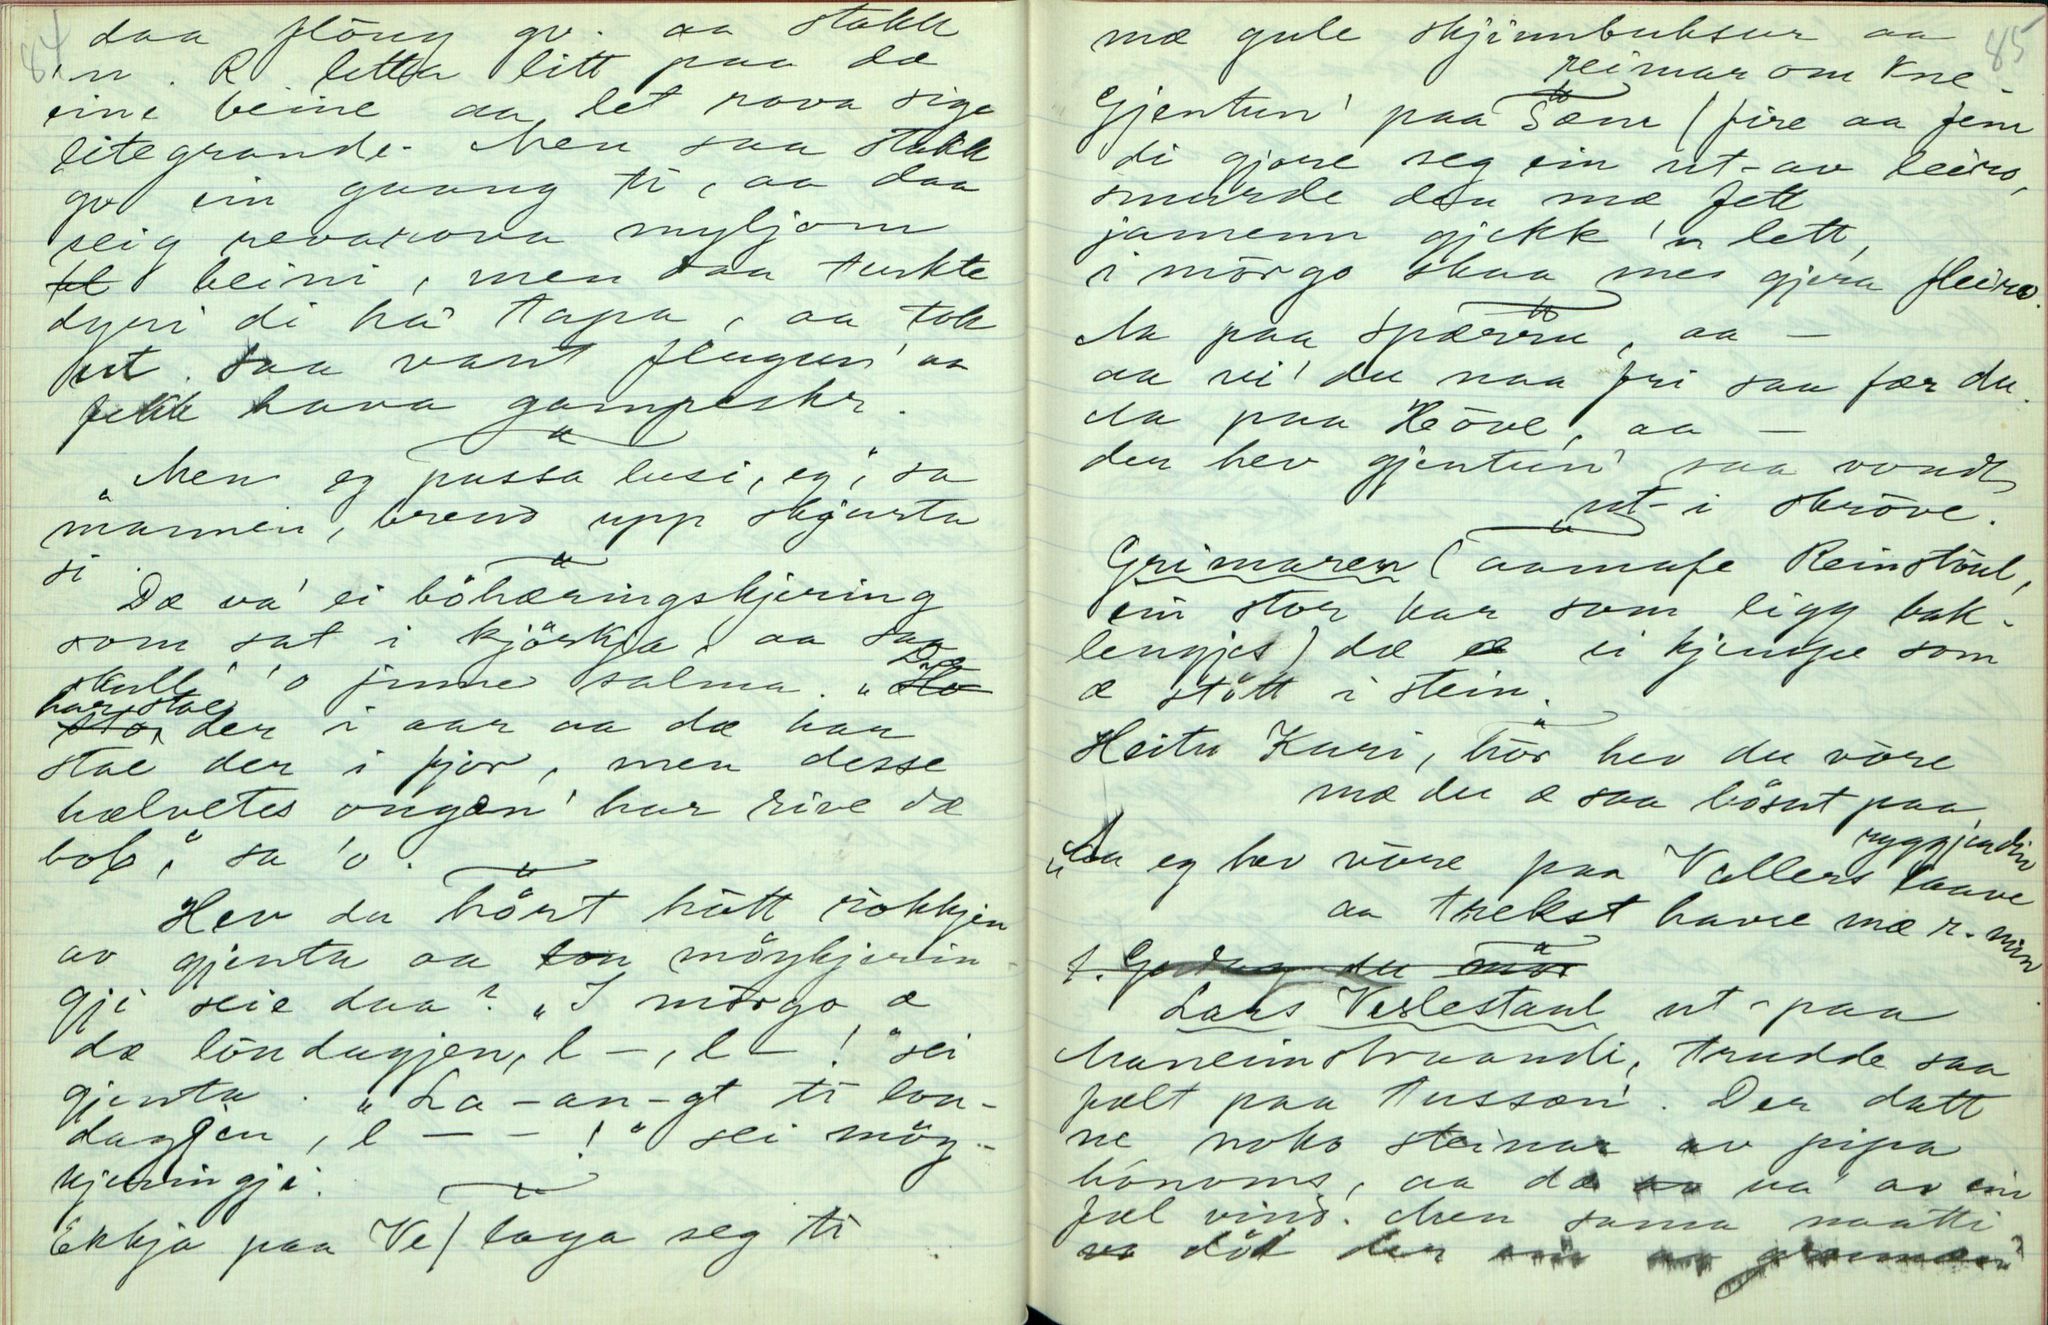 84
daa flöug gv. aa stakk
'n. R letta litt paa da
eine beine aa let rova siga
litegrande. Men saa stakk
gv ein gaang ti, aa daa
seig revarova myljom
beini, men daa turkte
dyri di ha' tapa, aa tok
ut. Saa vant flugun' aa
fekk hava gampeskr.
"
„Men eg passa lusi, eg", sa
mannen, brend upp skjurta
si.
"
Dæ va' ei böhæringskjering
som sat i kjörkja, aa saa
skull' 'o finne salma. „ Dæ
har stae der i aar aa dæ har
stae der i fjor, men desse
hælvetes ongan' har rive dæ
bol", sa 'o.
"
Hev du hört hått rokkjen
av gjenta aa möykjerin-
gji seie daa? „I mörgo æ
dæ löudagjen, l –, l – !" sei
gjenta. „La-an-gt ti lou-
dagjen, l – – !" sei möy-
kjeringji.
"
Ekkja paa Ve/ laga seg ti
85
mæ gule skjinnbuksur aa
reimar om kne.
"
Gjentun' paa Sæm (fire aa fem
di gjore seg ein ut-av leiro,
smurde den mæ fett
jamenn gjekk 'n lett,
i mörgo skaa me gjera fleiro.
"
Aa paa Spærru, aa –
aa vi' du naa fri saa fær du.
Aa paa Höve, aa –
der hev gjentun' saa vondt
ut-i skröve.
"
Grimaren (aamafe Reinstöul,
ein stor kar som ligg bak-
lengjes) dæ æ ei kjempe som
æ stött i stein.
"
Heitu Kari, hör hev du vöre
mæ du æ saa bösut paa
ryggjen din
„Aa eg hev vöre paa Vallers laave
aa trekst havre mæ r. min.
"
Lars Veslestaul ut-paa
Maneimstraandi, trudde saa
fælt paa tussan'. Der datt
ne noko steinar av pipa
hónoms, aa dæ va' av ein
fæl vind. Men sama naatti
död der